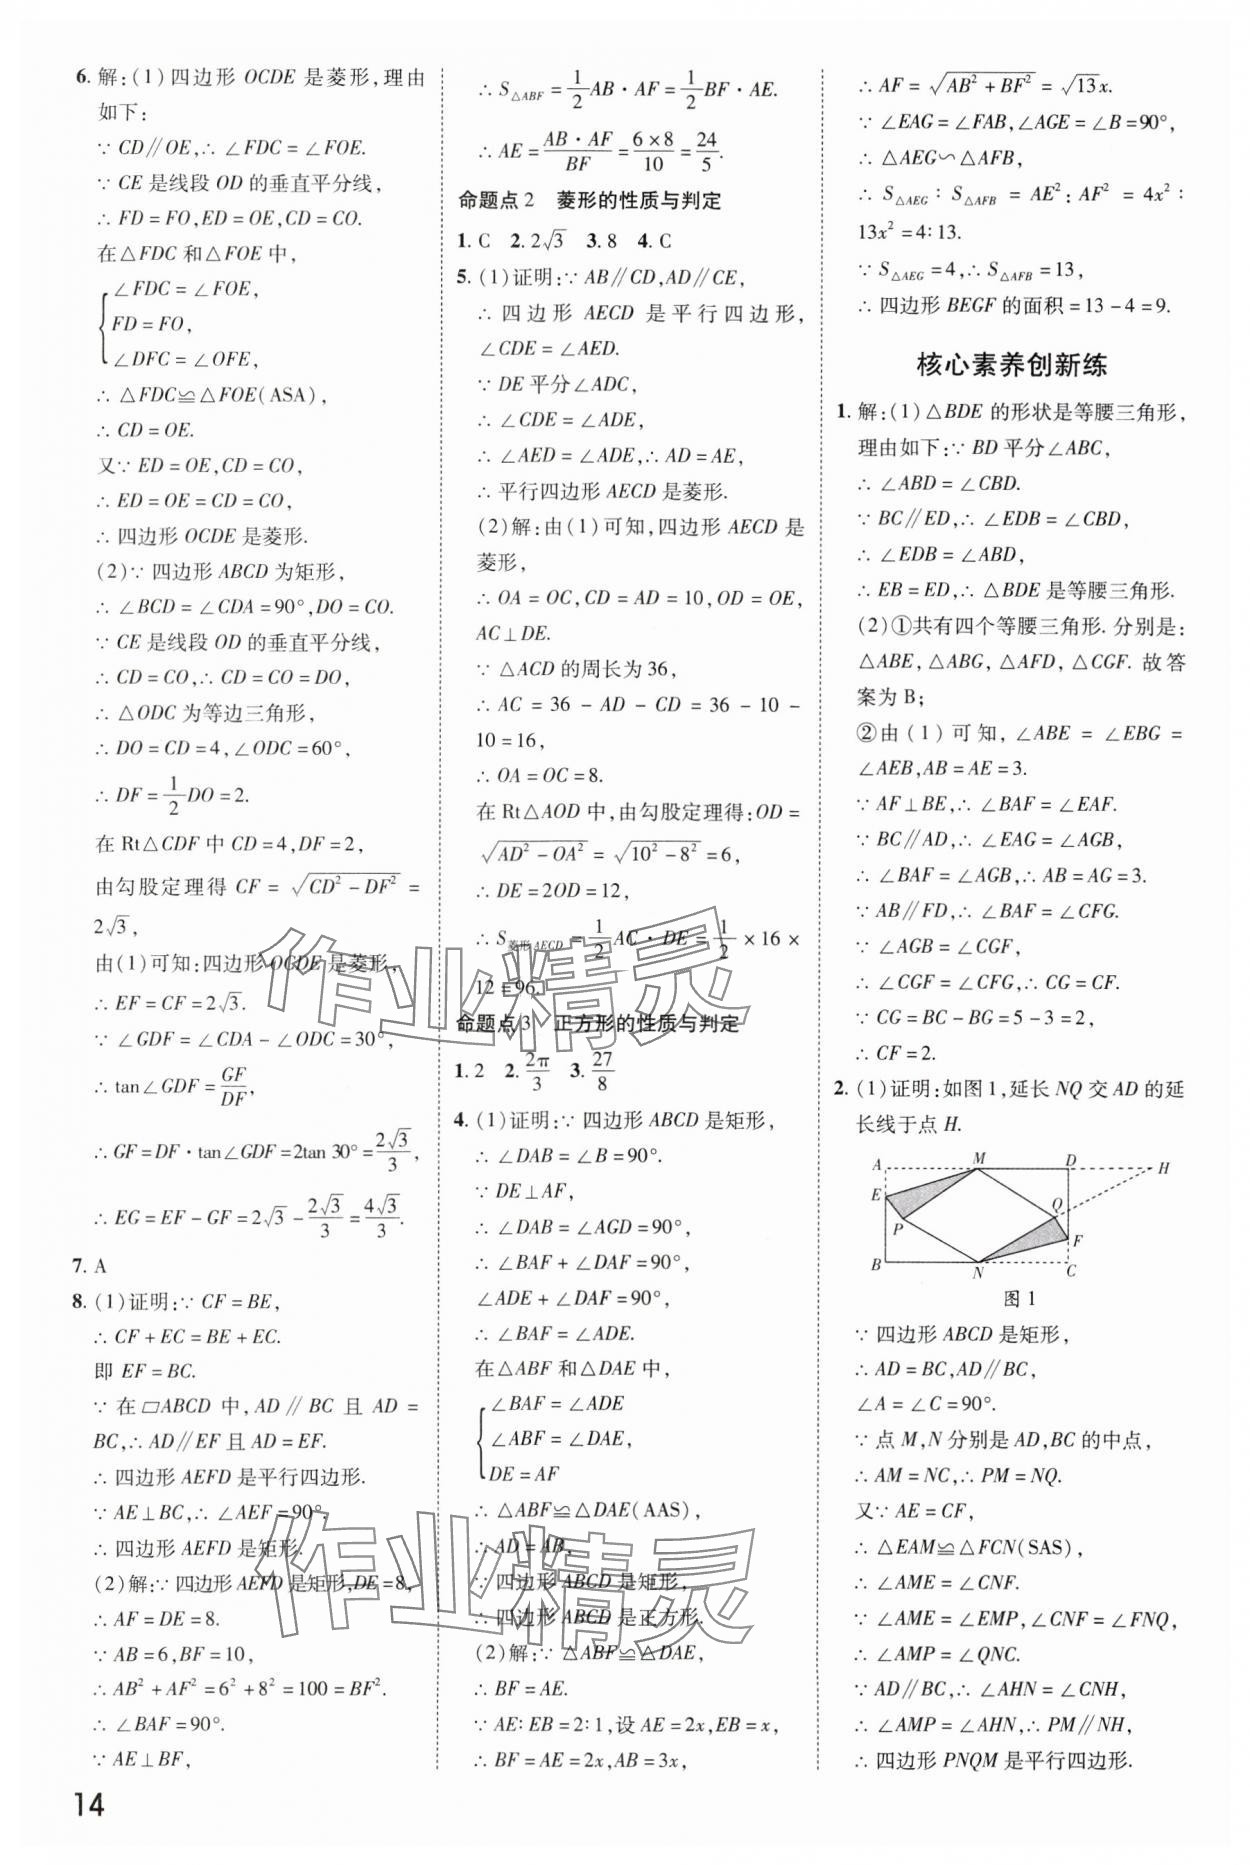 6. 解:(1)四边形 OCDE 是菱形,理由
如下:
∵ CD∥OE,∴ ∠FDC = ∠FOE.
∵ CE 是线段 OD 的垂直平分线,
∴ FD = FO,ED = OE,CD = CO.
在△FDC 和△FOE 中,
∠FDC = ∠FOE,
FD = FO,
∠DFC = ∠OFE,
∴ △FDC≌△FOE(ASA),
∴ CD = OE.
又∵ ED = OE,CD = CO,
∴ ED = OE = CD = CO,
∴ 四边形 OCDE 是菱形.
(2)∵ 四边形 ABCD 为矩形,
∴ ∠BCD = ∠CDA = 90°,DO = CO.
∵ CE 是线段 OD 的垂直平分线,
∴ CD = CO,∴ CD = CO = DO,
∴ △ODC 为等边三角形,
∴ DO = CD = 4,∠ODC = 60°,
∴ DF = 1/2 DO = 2.
在 Rt△CDF 中 CD = 4,DF = 2,
由勾股定理得 CF = √(CD² - DF²) =
2√3,
由(1)可知:四边形 OCDE 是菱形,
∴ EF = CF = 2√3.
∵ ∠GDF = ∠CDA - ∠ODC = 30°,
∴ tan∠GDF = GF/DF,
∴ GF = DF·tan∠GDF = 2tan 30° = 2√3/3,
∴ EG = EF - GF = 2√3 - 2√3/3 = 4√3/3.
7. A
8. (1)证明:∵ CF = BE,
∴ CF + EC = BE + EC.
即 EF = BC.
∵ 在 ▱ABCD 中,AD∥BC 且 AD =
BC,∴ AD∥EF 且 AD = EF.
∴ 四边形 AEFD 是平行四边形.
∵ AE⊥BC,∴ ∠AEF = 90°.
∴ 四边形 AEFD 是矩形.
(2)解:∵ 四边形 AEFD 是矩形,DE = 8,
∴ AF = DE = 8.
∵ AB = 6,BF = 10,
∴ AB² + AF² = 6² + 8² = 100 = BF².
∴ ∠BAF = 90°.
∵ AE⊥BF,
14
∴ S△ABF = 1/2 AB·AF = 1/2 BF·AE.
∴ AE = AB·AF/BF = 6×8/10 = 24/5.
命题点 2 菱形的性质与判定
1. C 2. 2√3 3. 8 4. C
5. (1)证明:∵ AB∥CD,AD∥CE,
∴ 四边形 AECD 是平行四边形,
∠CDE = ∠AED.
∵ DE 平分∠ADC,
∴ ∠CDE = ∠ADE,
∴ ∠AED = ∠ADE,∴ AD = AE,
∴ 平行四边形 AECD 是菱形.
(2)解:由(1)可知,四边形 AECD 是
菱形,
∴ OA = OC,CD = AD = 10,OD = OE,
AC⊥DE.
∵ △ACD 的周长为 36,
∴ AC = 36 - AD - CD = 36 - 10 -
10 = 16,
∴ OA = OC = 8.
在 Rt△AOD 中,由勾股定理得:OD =
√(AD² - OA²) = √(10² - 8²) = 6,
∴ DE = 2OD = 12,
∴ S菱形AECD = 1/2 AC·DE = 1/2 × 16 ×
12 = 96.
命题点 3 正方形的性质与判定
1. 2 2. 2π/3 3. 27/8
4. (1)证明:∵ 四边形 ABCD 是矩形,
∴ ∠DAB = ∠B = 90°.
∵ DE⊥AF,
∴ ∠DAB = ∠AGD = 90°,
∴ ∠BAF + ∠DAF = 90°,
∠ADE + ∠DAF = 90°,
∴ ∠BAF = ∠ADE.
在△ABF 和△DAE 中,
∠BAF = ∠ADE
∠ABF = ∠DAE,
DE = AF
∴ △ABF≌△DAE(AAS),
∴ AD = AB,
∵ 四边形 ABCD 是矩形,
∴ 四边形 ABCD 是正方形.
(2)解:∵ △ABF≌△DAE,
∴ BF = AE.
∵ AE∶EB = 2∶1,设 AE = 2x,EB = x,
∴ BF = AE = 2x,AB = 3x,
∴ AF = √(AB² + BF²) = √13x.
∵ ∠EAG = ∠FAB,∠AGE = ∠B = 90°,
∴ △AEG∽△AFB,
∴ S△AEG∶S△AFB = AE²∶AF² = 4x²∶
13x² = 4∶13.
∵ S△AEG = 4,∴ S△AFB = 13,
∴ 四边形 BEGF 的面积 = 13 - 4 = 9.
核心素养创新练
1. 解:(1)△BDE 的形状是等腰三角形,
理由如下:∵ BD 平分∠ABC,
∴ ∠ABD = ∠CBD.
∵ BC∥ED,∴ ∠EDB = ∠CBD,
∴ ∠EDB = ∠ABD,
∴ EB = ED,∴ △BDE 是等腰三角形.
(2)①共有四个等腰三角形. 分别是:
△ABE,△ABG,△AFD,△CGF. 故答
案为 B;
②由(1)可知,∠ABE = ∠EBG =
∠AEB,AB = AE = 3.
∵ AF⊥BE,∴ ∠BAF = ∠EAF.
∵ BC∥AD,∴ ∠EAG = ∠AGB,
∴ ∠BAF = ∠AGB,∴ AB = AG = 3.
∵ AB∥FD,∴ ∠BAF = ∠CFG.
∵ ∠AGB = ∠CGF,
∴ ∠CGF = ∠CFG,∴ CG = CF.
∵ CG = BC - BG = 5 - 3 = 2,
∴ CF = 2.
2. (1)证明:如图 1,延长 NQ 交 AD 的延
长线于点 H.
A M D H
E
P Q
F
B N C
图 1
∵ 四边形 ABCD 是矩形,
∴ AD = BC,AD∥BC,
∠A = ∠C = 90°.
∵ 点 M,N 分别是 AD,BC 的中点,
∴ AM = NC,∴ PM = NQ.
又∵ AE = CF,
∴ △EAM≌△FCN(SAS),
∴ ∠AME = ∠CNF.
∵ ∠AME = ∠EMP,∠CNF = ∠FNQ,
∴ ∠AMP = ∠QNC.
∵ AD∥BC,∴ ∠AHN = ∠CNH,
∴ ∠AMP = ∠AHN,∴ PM∥NH,
∴ 四边形 PNQM 是平行四边形.
作业精灵
作业精灵